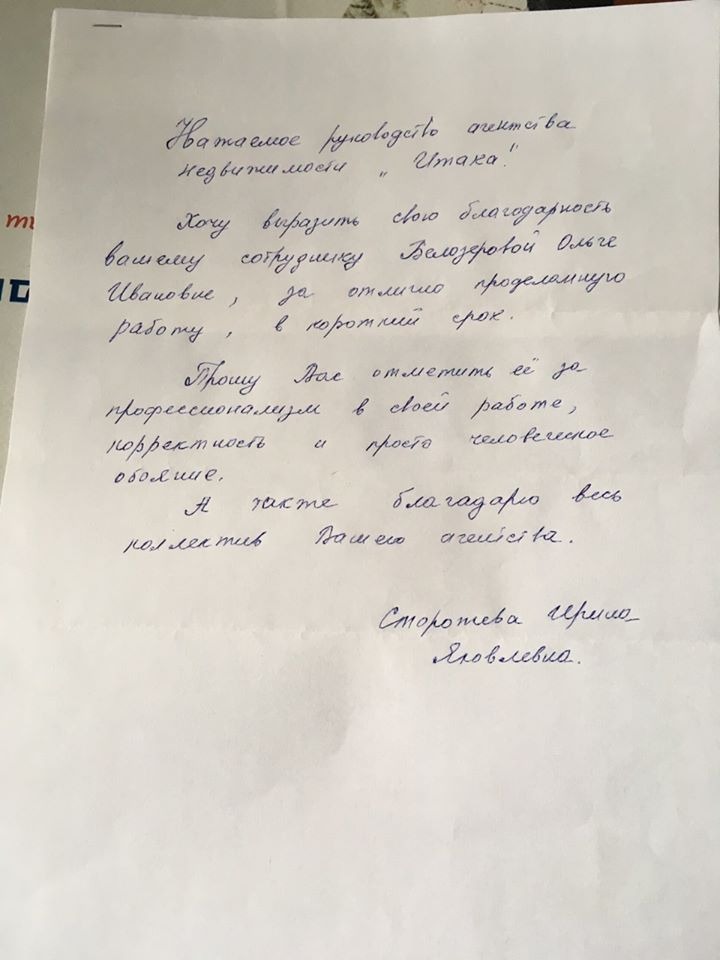 Уважаемое руководство агентства
недвижимости „Итака!"
Хочу выразить свою благодарность
вашему сотруднику Белозеровой Ольге
Ивановне, за отлично проделанную
работу, в короткий срок.
Прошу Вас отметить её за
профессионализм в своей работе,
корректность и просто человеческое
обояние.
А также благадарю весь
коллектив Вашего агентства.
Сторожева Ирина
Яковлевна.